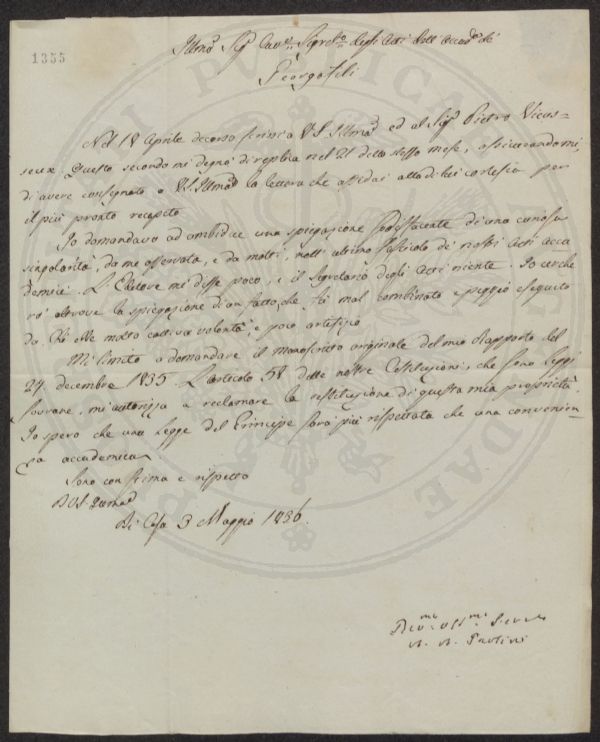 1355
Illmo Sig. Cav. Segreto degli Atti dell'Accad. de'
Georgofili
Nel 18 Aprile decorso scrissi a VS. Illma ed al Sig. Pietro Vieus=
seux. Questo secondo mi degnò di replica nel 21 detto stesso mese, assicurandomi
di avere consegnato a VS. Illma la lettera che affidai alla di lui cortesia per
il più pronto recapito
Io domandava ad ambidue una spiegazione sodisfacente di una curiosa
singolarità, da me osservata, e da molti, nell'ultimo fascicolo de' nostri Atti acca
demici. L'Editore mi disse poco, e il Segretario degli Atti niente. Io cerche
rò altrove la spiegazione di un fatto, che fu mal combinato e peggio eseguito
da chi ebbe molta cattiva volontà, e poco artifizio
Mi limito a domandare il Manoscritto originale del mio Rapporto del
24 decembre 1835. L'articolo 58 delle nostre Costituzioni, che sono Leggi
sovrane, mi autorizza a reclamare la restituzione di questa mia proprietà.
Io spero che una Legge del Principe sarà più rispettata che una convenien=
za accademica
Sono con stima e rispetto
D VS. Illma
Di Casa 3 Maggio 1836.
Devmo Obbmo Servre
Paolini